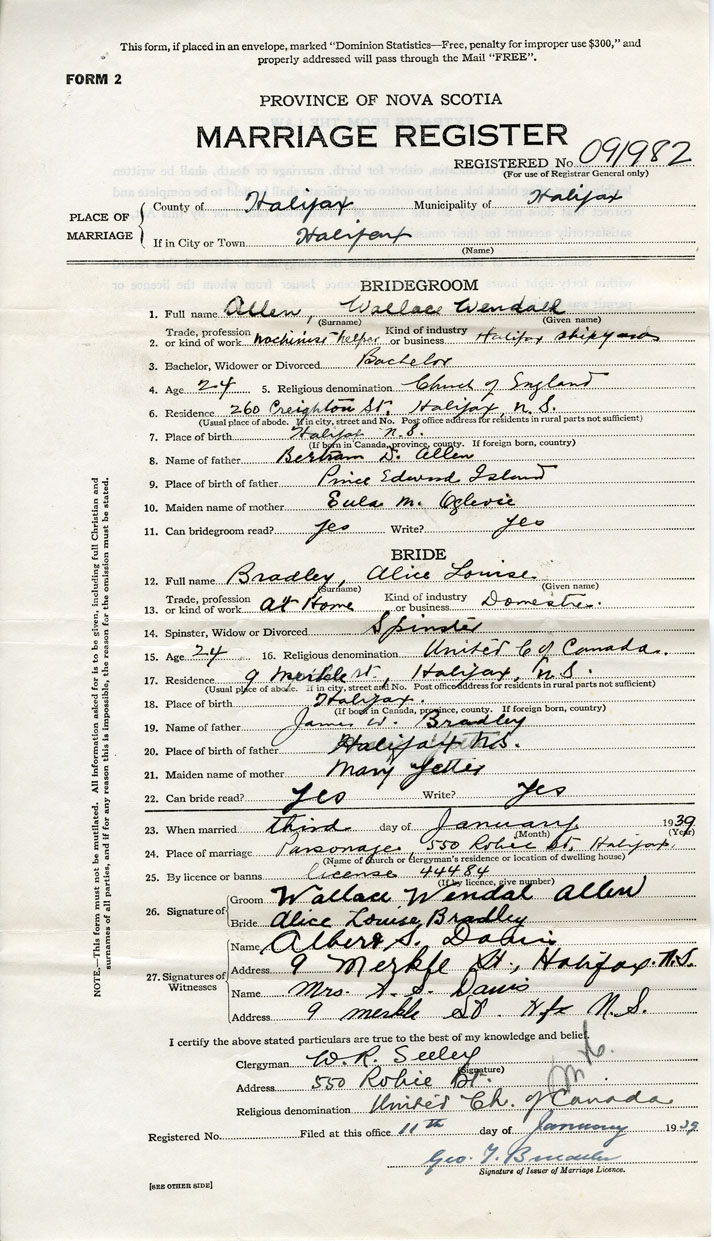 This form, if placed in an envelope, marked "Dominion Statistics—Free, penalty for improper use $300," and
properly addressed will pass through the Mail "FREE".
FORM 2
PROVINCE OF NOVA SCOTIA
MARRIAGE REGISTER
REGISTERED No 091982
(For use of Registrar General only)
PLACE OF MARRIAGE
County of Halifax Municipality of Halifax
If in City or Town Halifax
(Name)
BRIDEGROOM
1. Full name Allen, Wallace Wendall
(Surname) (Given name)
2. Trade, profession or kind of work Machinist helper Kind of industry or business Halifax shipyards
3. Bachelor, Widower or Divorced Bachelor
4. Age 24 5. Religious denomination Church of England
6. Residence 260 Creighton St, Halifax, N.S.
(Usual place of abode. If in city, street and No. Post office address for residents in rural parts not sufficient)
7. Place of birth Halifax N.S.
(If born in Canada, province, county. If foreign born, country)
8. Name of father Bertram D. Allen
9. Place of birth of father Prince Edward Island
10. Maiden name of mother Eula M. Oglevie
11. Can bridegroom read? yes Write? yes
BRIDE
12. Full name Bradley, Alice Louise
(Surname) (Given name)
13. Trade, profession or kind of work At Home Kind of industry or business Domestic.
14. Spinster, Widow or Divorced Spinster
15. Age 24 16. Religious denomination United C of Canada.
17. Residence 9 Merkle st, Halifax, N.S.
(Usual place of abode. If in city, street and No. Post office address for residents in rural parts not sufficient)
18. Place of birth Halifax.
(If born in Canada, province, county. If foreign born, country)
19. Name of father James W. Bradley
20. Place of birth of father Halifax N.S.
21. Maiden name of mother Mary
22. Can bride read? Yes Write? Yes
23. When married third day of January 1939
(Month) (Year)
24. Place of marriage Parsonage, 550 Robie St, Halifax,
(Name of church or clergyman's residence or location of dwelling house)
25. By licence or banns license 44484
(If by licence, give number)
26. Signature of
Groom Wallace Wendal Allen
Bride Alice Louise Bradley
27. Signatures of Witnesses
Name Albert S. Davis
Address 9 Merkle St., Halifax. N.S.
Name Mrs. A. S. Davis
Address 9 merkle St. Hfx N.S.
I certify the above stated particulars are true to the best of my knowledge and belief.
Clergyman W. R. Seeley
(Signature)
Address 550 Robie St.
Religious denomination United Ch. of Canada
Registered No. Filed at this office 11th day of January 1939
Geo. T.
Signature of Issuer of Marriage Licence.
[SEE OTHER SIDE]
NOTE.—This form must not be mutilated. All information asked for is to be given, including full Christian and
surnames of all parties, and if for any reason this is impossible, the reason for the omission must be stated.